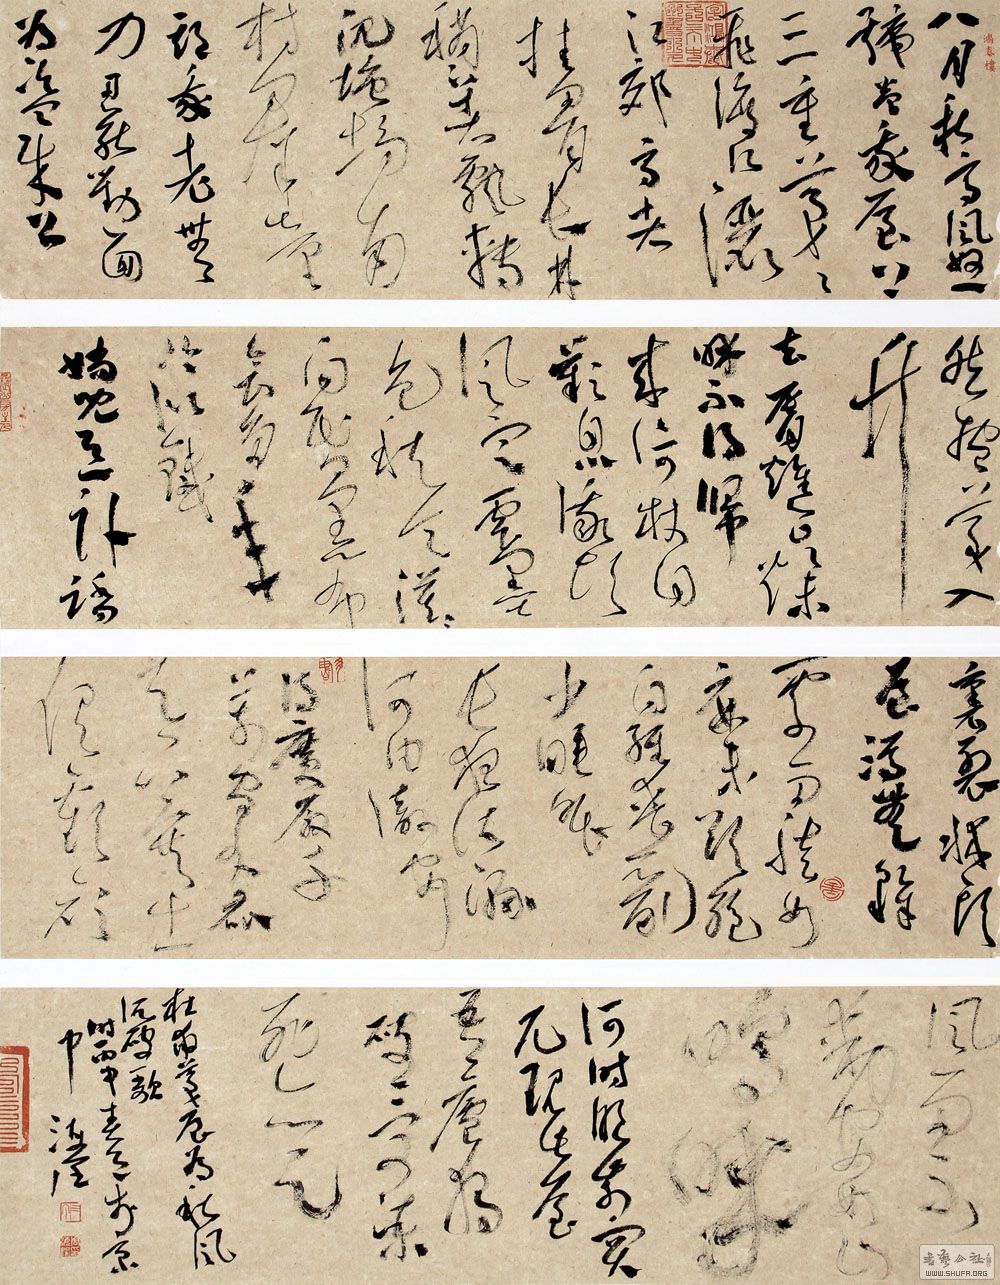 八月秋高風怒
號卷我屋上
三重茅〻
飛渡江灑
江郊高者
挂罥長林
稍下者飄轉
沉塘坳南
村群童
欺我老無
力忍能對面
為盜賊公
然抱茅入
竹
去脣焦口燥
呼不得歸
來倚杖自
歎息俄頃
風定雲墨
色秋天漠〻
向昏黑布
衾多年
冷似鐵
嬌兒惡臥踏
裏裂牀頭
屋漏無乾
雨腳如
麻未斷絕
自經喪亂
少睡眠
長夜沾濕
何由徹安
得廣廈千
萬間大庇
天下寒士
俱歡顏
風雨不
動安如山
嗚呼
何時眼前突
兀見此屋
吾廬獨
破受凍
死亦足
杜甫茅屋為秋風
破歌
书艺公社
WWW.SHUFA.ORG